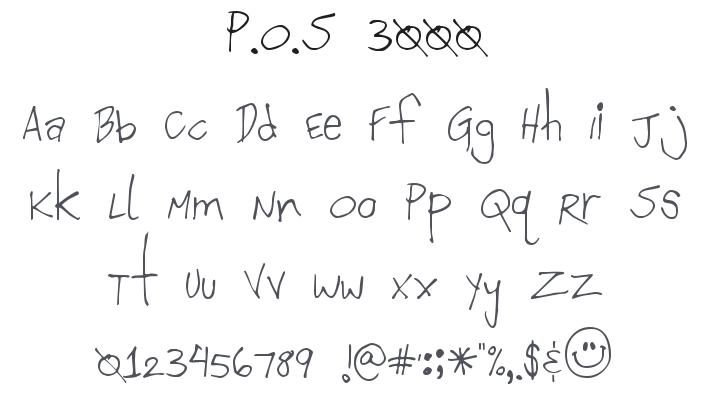 P.O.S 3000
Aa Bb Cc Dd Ee Ff Gg Hh Ii Jj
Kk Ll Mm Nn Oo Pp Qq Rr Ss
Tt Uu Vv Ww Xx Yy Zz
0123456789 !@#':;*"%,.$&☺